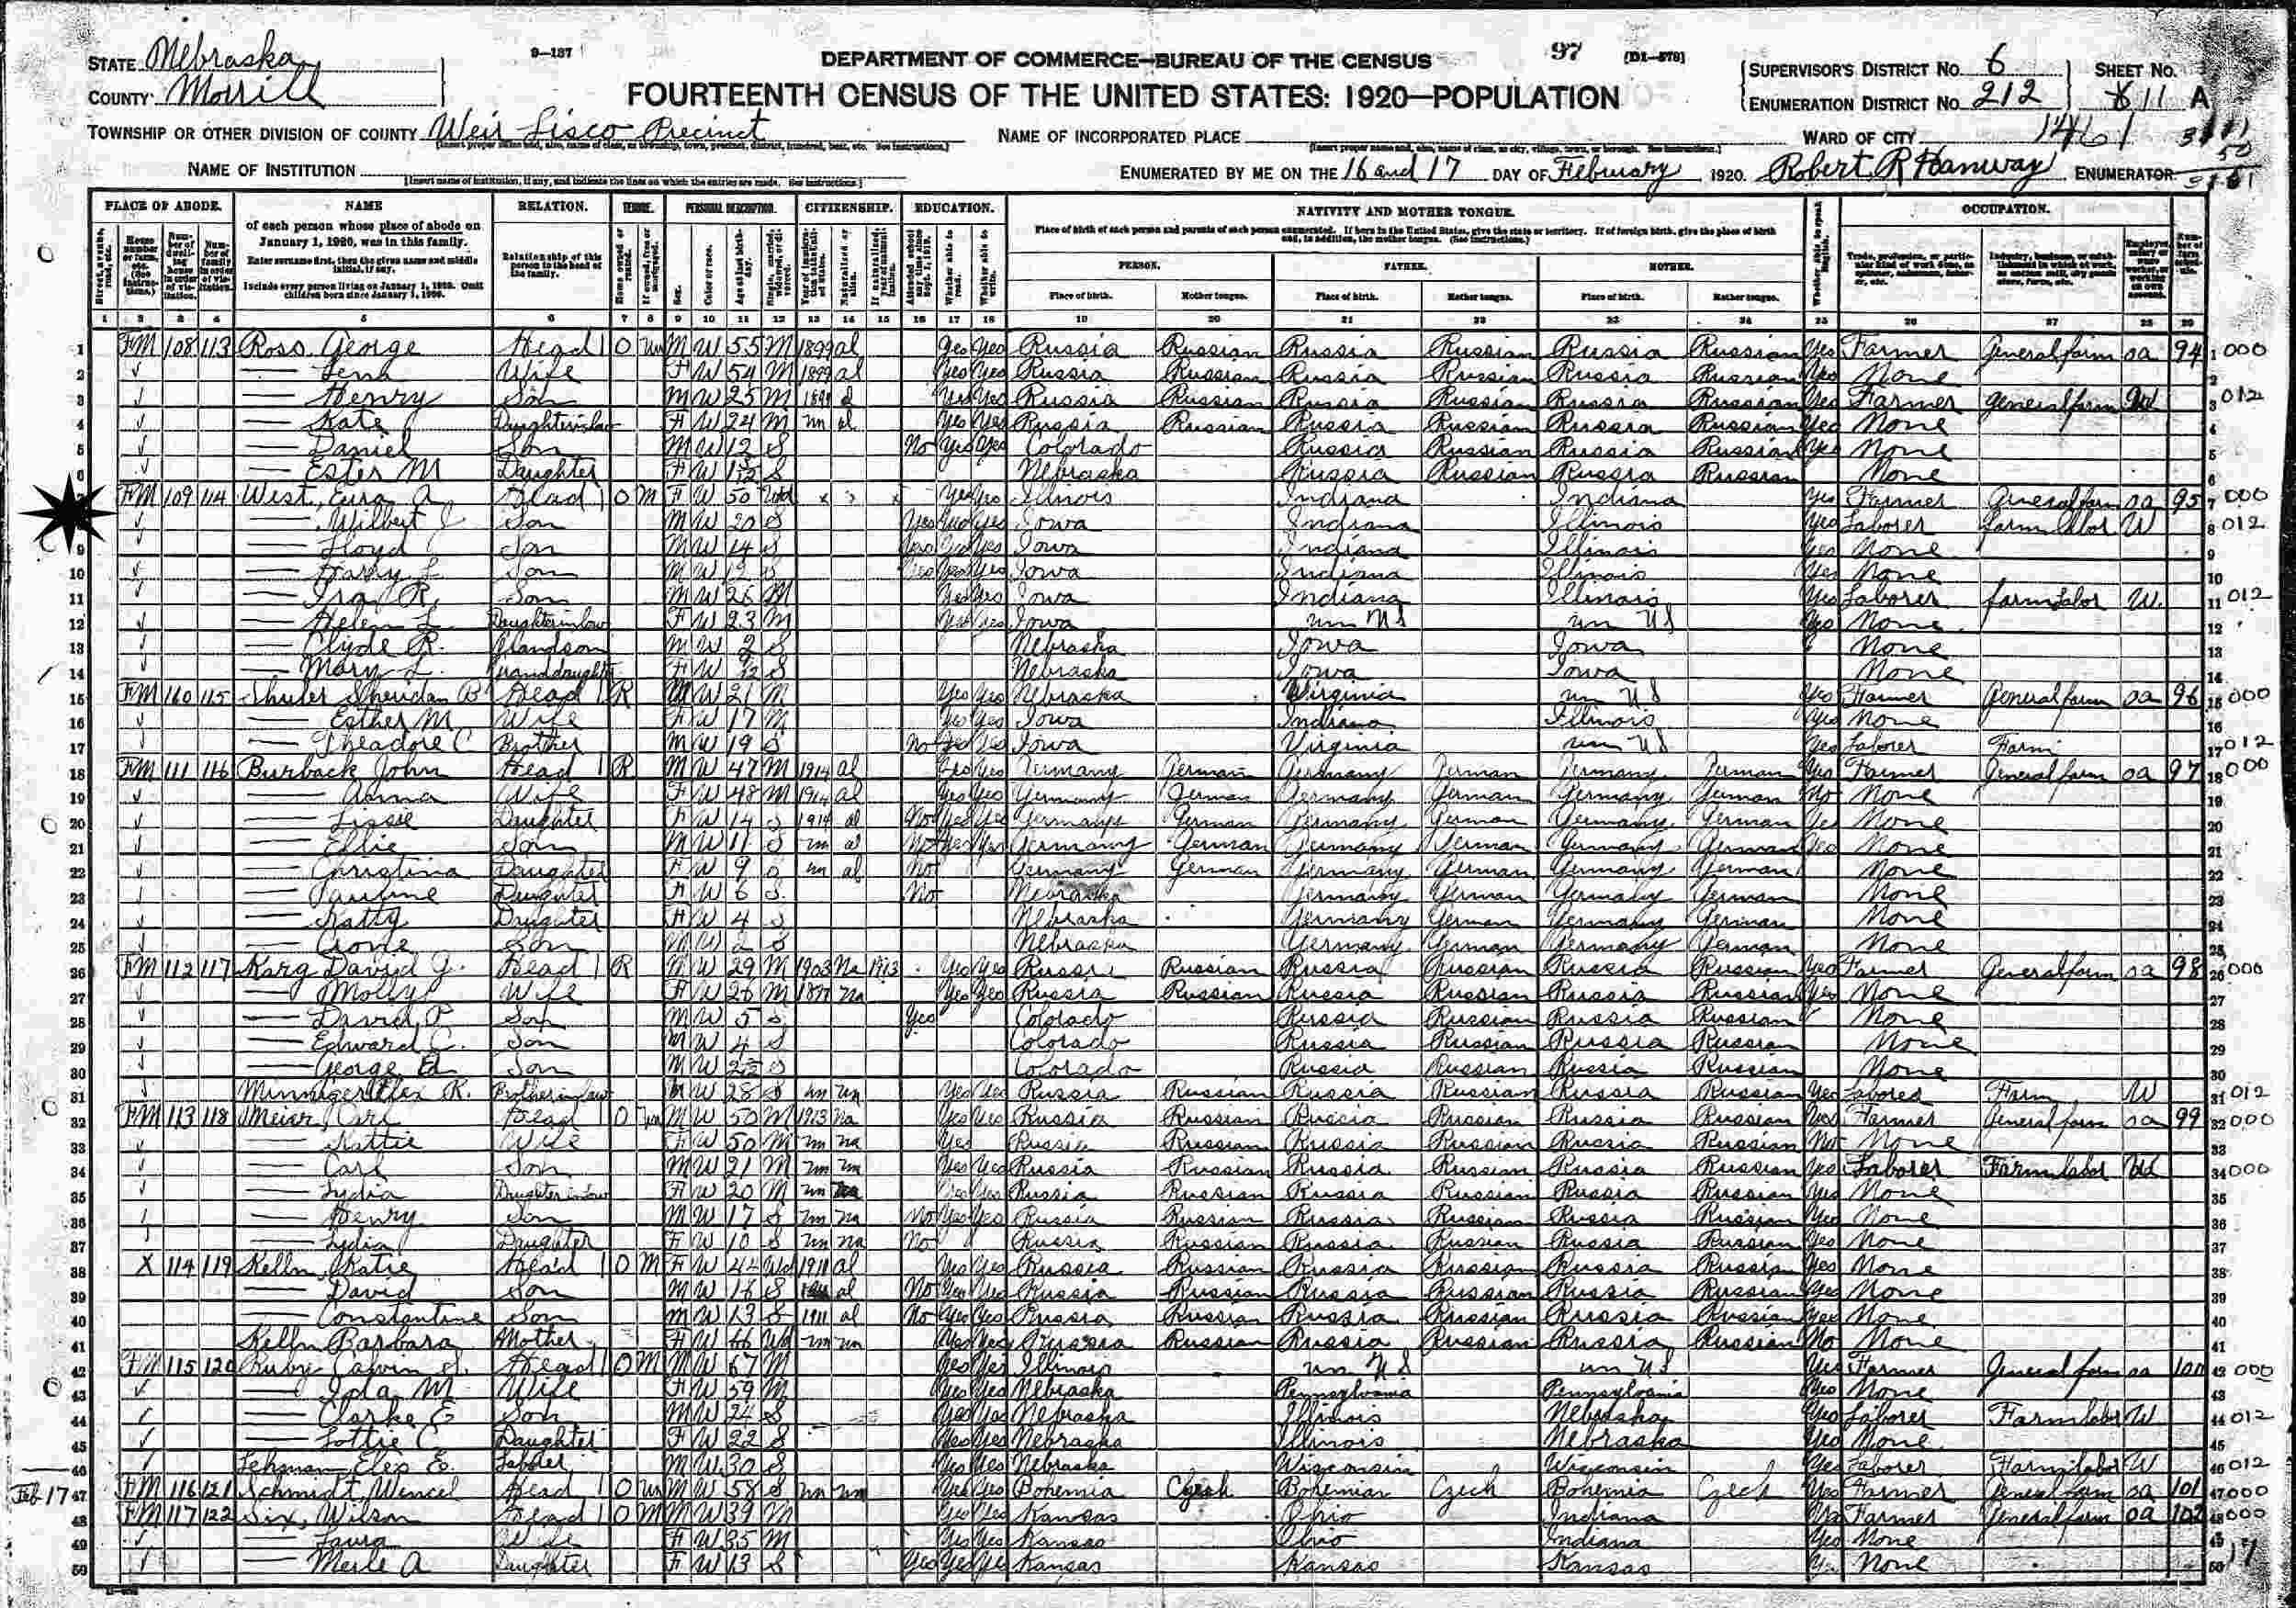 9-137
DEPARTMENT OF COMMERCE—BUREAU OF THE CENSUS
97
[D1-578]
FOURTEENTH CENSUS OF THE UNITED STATES: 1920—POPULATION
STATE Nebraska
COUNTY Morrill
SUPERVISOR'S DISTRICT NO. 6
ENUMERATION DISTRICT NO. 212
SHEET NO. 11 A
TOWNSHIP OR OTHER DIVISION OF COUNTY Weir Lisco Precinct
NAME OF INCORPORATED PLACE
WARD OF CITY
1461
NAME OF INSTITUTION
ENUMERATED BY ME ON THE 16 and 17 DAY OF February 1920. Robert R Hanway ENUMERATOR
PLACE OF ABODE. NAME RELATION. TENURE. PERSONAL DESCRIPTION. CITIZENSHIP. EDUCATION. NATIVITY AND MOTHER TONGUE. OCCUPATION.
of each person whose place of abode on January 1, 1920, was in this family.
Enter surname first, then the given name and middle initial, if any.
Include every person living on January 1, 1920. Omit children born since January 1, 1920.
Relationship of this person to the head of the family.
Place of birth of each person and parents of each person enumerated. If born in the United States, give the state or territory. If of foreign birth, give the place of birth and, in addition, the mother tongue. (See Instructions.)
PERSON. FATHER. MOTHER.
Place of birth. Mother tongue. Place of birth. Mother tongue. Place of birth. Mother tongue.
1 2 3 4 5 6 7 8 9 10 11 12 13 14 15 16 17 18 19 20 21 22 23 24 25 26 27 28 29
1 FM 108 113 Ross George Head 1 O un M W 55 M 1899 al Yes Yes Russia Russian Russia Russian Russia Russian Yes Farmer General farm oa 94 1 000
2 — Lena Wife F W 54 M 1899 al Yes Yes Russia Russian Russia Russian Russia Russian Yes None 2
3 — Henry Son M W 25 M 1899 al Yes Yes Russia Russian Russia Russian Russia Russian Yes Farmer General farm W 3 012
4 — Kate Daughterinlaw F W 24 M un al Yes Yes Russia Russian Russia Russian Russia Russian Yes None 4
5 — Daniel Son M W 12 S No Yes Yes Colorado Russia Russian Russia Russian Yes None 5
6 — Ester M Daughter F W S Nebraska Russia Russian Russia Russian None 6
7 FM 109 114 West, A Head 1 O M F W 50 Wd Yes Yes Illinois Indiana Indiana Yes Farmer General farm oa 95 7 000
8 — Wilbert J Son M W 20 S Yes Yes Yes Iowa Indiana Illinois Yes Laborer farm labor W 8 012
9 — Floyd Son M W 14 S Yes Yes Yes Iowa Indiana Illinois Yes None 9
10 — Harry L Son M W 12 S Yes Yes Yes Iowa Indiana Illinois Yes None 10
11 — Ira R. Son M W 26 M Yes Yes Iowa Indiana Illinois Yes Laborer farm labor W. 11 012
12 — Helen L Daughterinlaw F W 23 M Yes Yes Iowa un US un US Yes None 12
13 — Clyde R. Grandson M W 2 S Nebraska Iowa Iowa None 13
14 — Mary L. Granddaughter F W S Nebraska Iowa Iowa None 14
15 FM 160 115 Shuler Sheridan B Head 1 R M W 21 M Yes Yes Nebraska Virginia un US Yes Farmer General farm oa 96 15 000
16 — Esther M Wife F W 17 M Yes Yes Iowa Indiana Illinois Yes None 16
17 — Theadore C Brother M W 19 S No Yes Yes Iowa Virginia un US Yes Laborer Farm 17 012
18 FM 111 116 Burback John Head 1 R M W 47 M 1914 al Yes Yes Germany German Germany German Germany German Yes Farmer General farm oa 97 18 000
19 — Anna Wife F W 48 M 1914 al Yes Yes Germany German Germany German Germany German No None 19
20 — Lissie Daughter F W 14 S 1914 al No Yes Yes Germany German Germany German Germany German Yes None 20
21 — Ellie Son M W 11 S un al No Yes Yes Germany German Germany German Germany German Yes None 21
22 — Christina Daughter F W 9 S un al No Germany German Germany German Germany German None 22
23 — Pauline Daughter F W 6 S No Nebraska Germany German Germany German None 23
24 — Katty Daughter F W 4 S Nebraska Germany German Germany German None 24
25 — Son M W 2 S Nebraska Germany German Germany German None 25
26 FM 112 117 Karg David J. Head 1 R M W 29 M 1903 Na 1913 Yes Yes Russia Russian Russia Russian Russia Russian Yes Farmer General farm oa 98 26 000
27 — Molly Wife F W 26 M na Yes Yes Russia Russian Russia Russian Russia Russian Yes None 27
28 — David P Son M W 5 S Yes Colorado Russia Russian Russia Russian None 28
29 — Edward C. Son M W 4 S Colorado Russia Russian Russia Russian None 29
30 — George Ed Son M W S Colorado Russia Russian Russia Russian None 30
31 Alex R. Brotherinlaw M W 28 S un un Yes Yes Russia Russian Russia Russian Russia Russian Yes Laborer Farm W 31 012
32 FM 113 118 Meier, Carl Head 1 O un M W 50 M 1913 Na Yes Yes Russia Russian Russia Russian Russia Russian Yes Farmer General farm oa 99 32 000
33 — Kattie Wife F W 50 M un na Yes Russia Russian Russia Russian Russia Russian No None 33
34 — Carl Son M W 21 M un un Yes Yes Russia Russian Russia Russian Russia Russian Yes Laborer Farm labor W 34 000
35 — Lydia Daughter in law F W 20 M un na Yes Yes Russia Russian Russia Russian Russia Russian Yes None 35
36 — Henry Son M W 17 S un na No Yes Yes Russia Russian Russia Russian Russia Russian Yes None 36
37 — Lydia Daughter F W 10 S un na No Russia Russian Russia Russian Russia Russian Yes None 37
38 X 114 119 Kelln, Katie Head 1 O M F W 42 Wd 1911 al Yes Yes Russia Russian Russia Russian Russia Russian Yes None 38
39 — David Son M W 16 S al No Yes Yes Russia Russian Russia Russian Russia Russian Yes None 39
40 — Constantine Son M W 13 S 1911 al No Yes Yes Russia Russian Russia Russian Russia Russian Yes None 40
41 Kelln Barbara Mother F W 66 Wd un un Yes Yes Russia Russian Russia Russian Russia Russian No None 41
42 FM 115 120 Ruby Calvin Head 1 O M M W 67 M Yes Yes Illinois un US un US Yes Farmer General farm oa 100 42 000
43 — Iola M Wife F W 59 M Yes Yes Nebraska Pennsylvania Pennsylvania Yes None 43
44 — Clarke E Son M W 24 S Yes Yes Nebraska Illinois Nebraska Yes Laborer Farm labor W 44 012
45 — Lottie C Daughter F W 22 S Yes Yes Nebraska Illinois Nebraska Yes None 45
46 Lehman E. Laborer M W 30 S Yes Yes Nebraska Wisconsin Wisconsin Yes Laborer Farm labor W 46 012
Feb 17 47 FM 116 121 Schmidt, Wencel Head 1 O un M W 58 S un un Yes Yes Bohemia Czech Bohemian Czech Bohemia Czech Yes Farmer General farm oa 101 47 000
48 FM 117 122 Six, Wilson Head 1 O M M W 39 M Yes Yes Kansas Ohio Indiana Yes Farmer General farm oa 102 48 000
49 — Laura Wife F W 35 M Yes Yes Kansas Ohio Indiana Yes None 49
50 — Merle A Daughter F W 13 S Yes Yes Yes Kansas Kansas Kansas Yes None 50